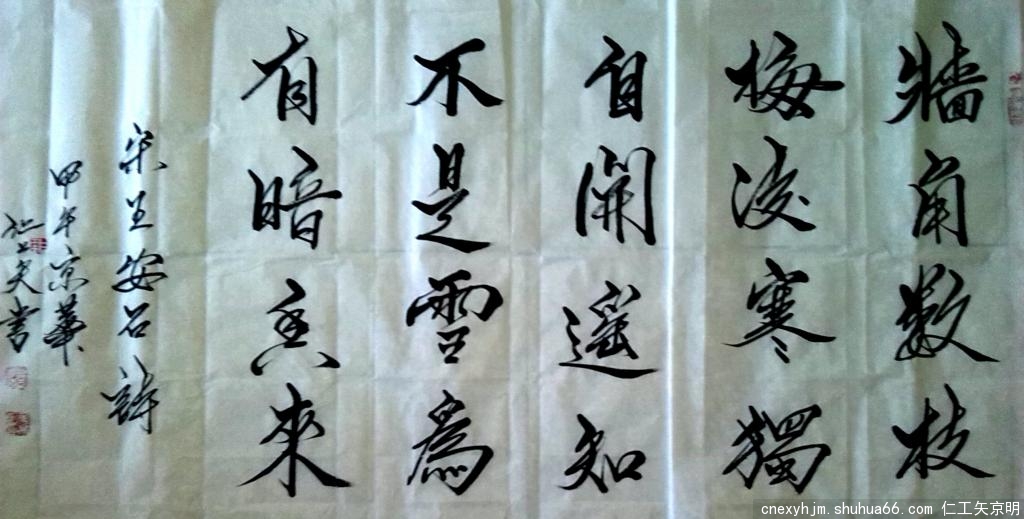 牆角數枝
梅凌寒獨
自開遥知
不是雪為
有暗香來
宋王安石詩
甲午京華
仁工矢書
cnexyhjm.shuhua66.com 仁工矢京明